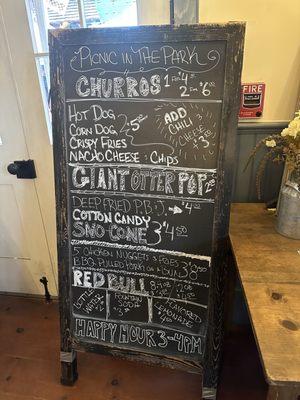 PICNIC IN THE PARK
CHURROS 1 FOR $4
2 FOR $6
HOT DOG
CORN DOG
CRISPY FRIES
NACHO CHEESE & CHIPS
ADD
CHILI
CHEESE
GIANT OTTER POP
DEEP FRIED P.B.J. $4
COTTON CANDY
SNO-CONE
5 CHICKEN NUGGETS & FRIES
BBQ PULLED PORK ON A BUN
RED BULL
LITTLE
FOUNTAIN
SODA
LEMONADE
HAPPY HOUR 3-4PM
FIRE